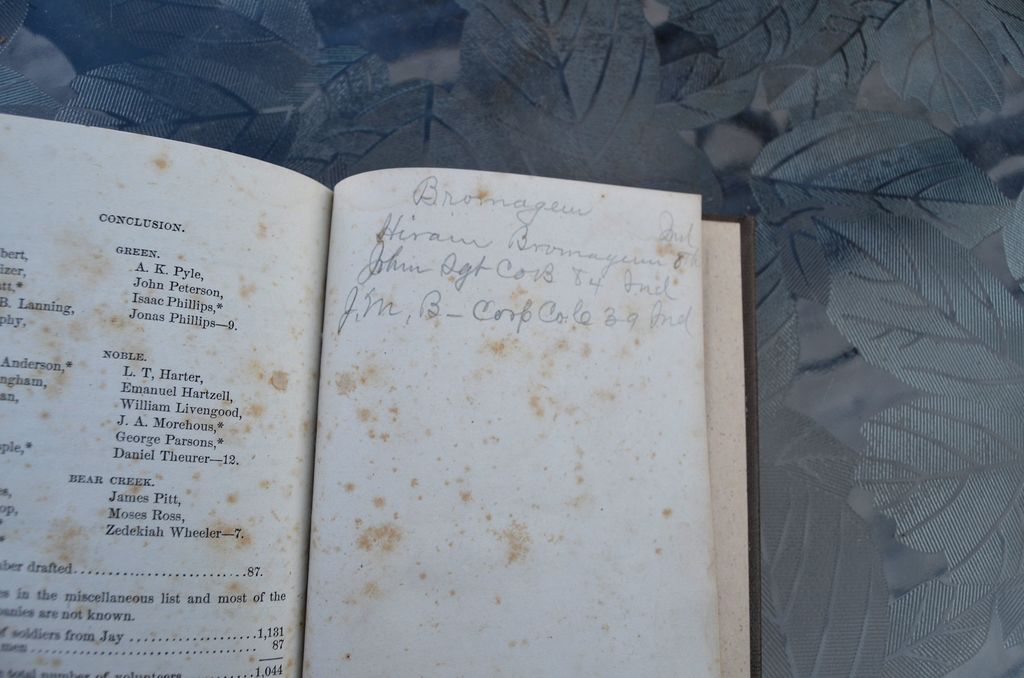 CONCLUSION.
bert,
GREEN.
izer,
A. K. Pyle,
tt,*
John Peterson,
B. Lanning,
Isaac Phillips,*
phy,
Jonas Phillips—9.
NOBLE.
Anderson,*
L. T, Harter,
ngham,
Emanuel Hartzell,
an,
William Livengood,
J. A. Morehous,*
George Parsons,*
ple,*
Daniel Theurer—12.
BEAR CREEK.
James Pitt,
op,
Moses Ross,
Zedekiah Wheeler—7.
ber drafted..........................87.
es in the miscellaneous list and most of the
panies are not known.
f soldiers from Jay ....................1,131
men .................................... 87
total number of volunteers ..............1,044
Bromagem
Hiram Bromagem 8th Ind
John Sgt Co B 84 Ind
J. M. B— Corp Co E 39 Ind